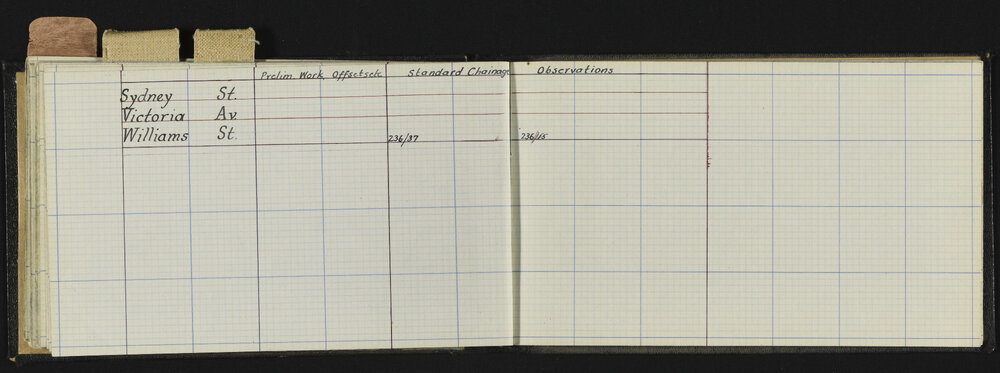 Prelim. Work, Offsets etc. Standard Chainage Observations
Sydney St.
Victoria Av.
Williams St. 236/37 736/15